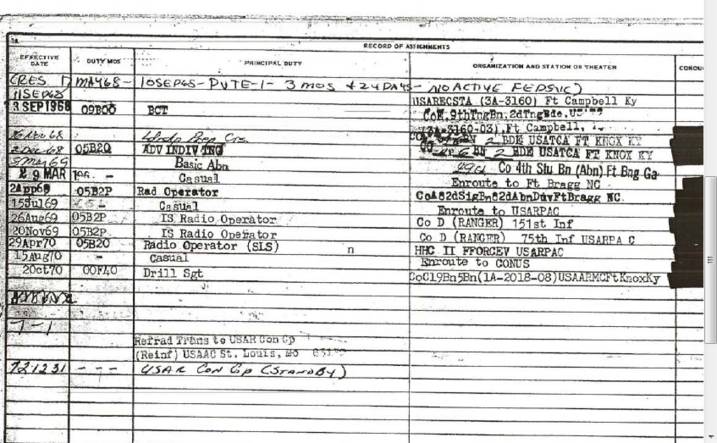 RECORD OF ASSIGNMENTS
EFFECTIVE DATE DUTY MOS PRINCIPAL DUTY ORGANIZATION AND STATION OR THEATER
(RES 17 MAY68 - 10SEP68 - PVTE-1 - 3 MOS & 24 DAYS - NO ACTIVE FEDSVC)
11SEP68 USARECSTA (3A-3160) Ft Campbell Ky
3 SEP1968 09B00 BCT CoK,9thTngBn,2dTngBde,
(3A-3160-03),Ft Campbell,
2 BDE USATCA FT KNOX KY
05B20 ADV INDIV TNG 2 BDE USATCA FT KNOX KY
Basic Abn Co 4th Stu Bn (Abn) Ft Bng Ga
29 MAR Casual Enroute to Ft Bragg NC
2Apr69 05B2P Rad Operator CoA82dSigBn82dAbnDivFtBragg NC
15Jul69 Casual Enroute to USARPAC
26Aug69 05B2P IS Radio Operator Co D (RANGER) 151st Inf
20Nov69 05B2P IS Radio Operator Co D (RANGER) 75th Inf USARPA C
29Apr70 05B20 Radio Operator (SLS) n HHC II FFORCEV USARPAC
15Aug70 - Casual Enroute to CONUS
20Oct70 00F40 Drill Sgt CoC19Bn5Bn(1A-2018-08)USAARMCFtKnoxKy
Refrad Trans to USAR Con Gp
(Reinf) USAAC St. Louis, Mo
721231 - - - USAR Con Gp (STANDBY)